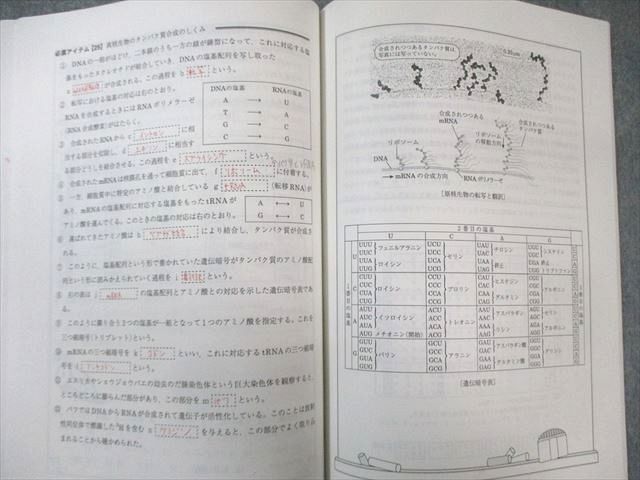 必需アイテム[25] 真核生物のタンパク質合成のしくみ
① DNAの一部がほどけ，二本鎖のうち一方の鎖が鋳型になって，これに対応する塩
基をもったヌクレオチドが結合していき，DNAの塩基配列を写し取った
が合成される。この過程を b 転写 という。
② 転写における塩基の対応は右のとおり。
RNAを合成するときにはRNAポリメラーゼ
(RNA合成酵素)がはたらく。
DNAの塩基 RNAの塩基
A ←→ U
T ←→ A
G ←→ C
C ←→ G
③ 合成されたRNAから c イントロン に相
当する部分を切除し，d エキソン に相当す
る部分どうしを結合させる。この過程を e スプライシング という。
④ 合成されたmRNAは核膜孔を通って細胞質に出て，f リボソーム に付着する。
⑤ 一方，細胞質中に特定のアミノ酸と結合している g tRNA (転移RNA)が
あり，mRNAの塩基配列に対応する塩基をもったtRNAが
アミノ酸を運んでくる。このときの塩基の対応は右のとおり。
A ←→ U
G ←→ C
⑥ 運ばれてきたアミノ酸は h ペプチド結合 により結合し，タンパク質が合成さ
⑦ このように，塩基配列という形で書かれていた遺伝暗号がタンパク質のアミノ酸配
列という形に読みかえられていく過程を i 翻訳 という。
⑧ 右の表は j mRNA の塩基配列とアミノ酸との対応を示した遺伝暗号表であ
る。
⑨ このように隣り合う3つの塩基が一組となって1つのアミノ酸を指定する。これを
三つ組暗号(トリプレット)という。
⑩ mRNAの三つ組暗号を k コドン といい，これに対応するtRNAの三つ組暗
号を l アンチコドン という。
⑪ ユスリカやショウジョウバエの幼虫のだ腺染色体という巨大染色体を観察すると，
ところどころに膨らんだ部分があり，この部分を m パフ という。
⑫ パフではDNAからRNAが合成されて遺伝子が活性化している。このことは放射
性同位体で標識した³Hを含む n ウリジン を与えると，この部分でよく取り込
まれることから確かめられた。
合成されつつあるタンパク質は
写真には写っていない。
0.25μm
合成されつつある
mRNA
合成されつつある
タンパク質
リボソーム
リボソーム
の移動方向
DNA
mRNAの合成方向
RNAポリメラーゼ
[原核生物の転写と翻訳]
2番目の塩基
U C A G
1番目の塩基
3番目の塩基
U
UUU UUC フェニルアラニン
UUA UUG ロイシン
UCU UCC UCA UCG セリン
UAU UAC チロシン
UAA UAG 終止
UGU UGC システイン
UGA 終止
UGG トリプトファン
C
CUU CUC CUA CUG ロイシン
CCU CCC CCA CCG プロリン
CAU CAC ヒスチジン
CAA CAG グルタミン
CGU CGC CGA CGG アルギニン
A
AUU AUC AUA イソロイシン
AUG メチオニン(開始)
ACU ACC ACA ACG トレオニン
AAU AAC アスパラギン
AAA AAG リシン
AGU AGC セリン
AGA AGG アルギニン
G
GUU GUC GUA GUG バリン
GCU GCC GCA GCG アラニン
GAU GAC アスパラギン酸
GAA GAG グルタミン酸
GGU GGC GGA GGG グリシン
[遺伝暗号表]